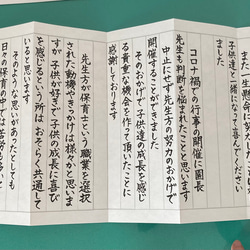 また一生懸命に
子供達と一緒になって喜んでください
ました
コロナ禍で各行事の開催に園長
先生も判断を悩まれたことと思います
中止にせず先生方の努力のおかげで
開催することができました
そのおかげで子供達の成長を感じ
る貴重な機会を作って頂いたことに
感謝しております
先生方が保育士という職業を選択
された動機やきっかけは様々かと思いま
すが子供が好きで子供の成長に喜び
を感じるという所はおそらく共通して
いると思います
そのような思いがあったとしても
日々の保育の中では苦労も多